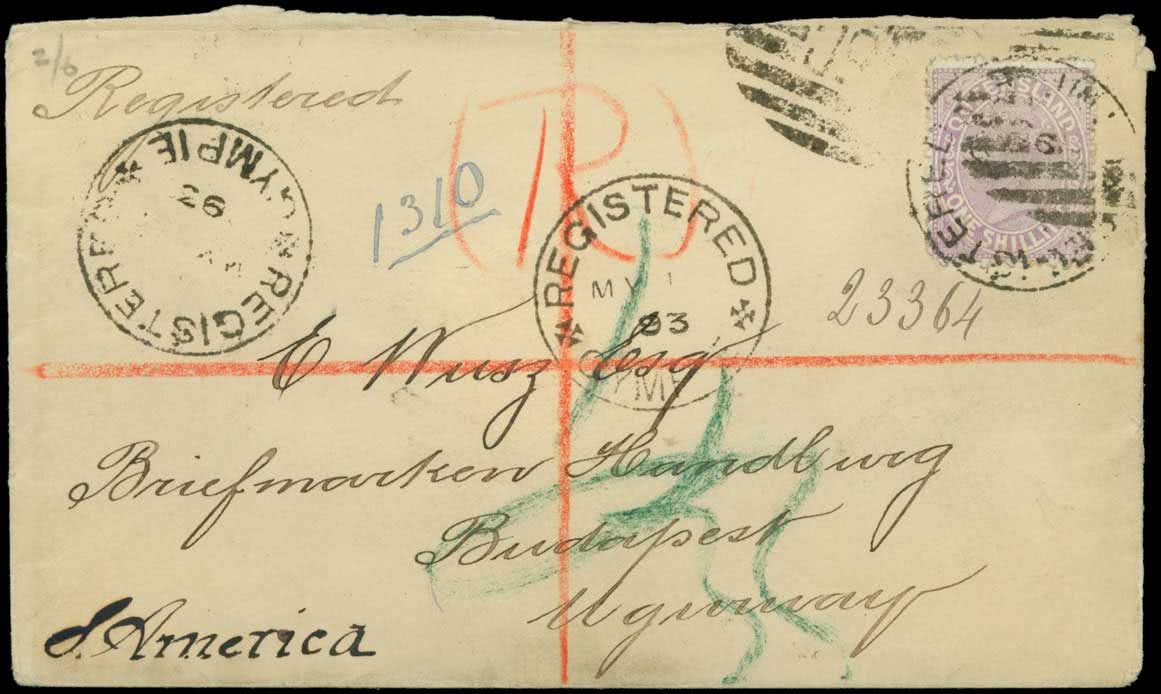 2/6
Registered
(R)
1310
REGISTERED
GYMPIE
93
REGISTERED
MY 1
93
GYMPIE
QUEENSLAND
ONE SHILLING
23364
E Wusz Esq
Briefmarken Handlung
Budapest
Uguruay
S. America